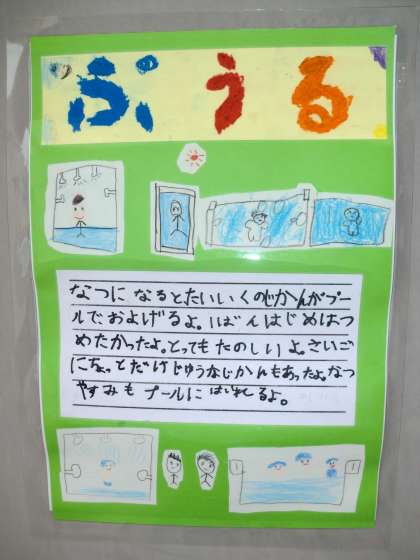 ぷうる
なつに なるとたいいくのじかんがプー
ルでおよげるよ。1ばんはじめはつ
めたかったよ。とってもたのしいよ。さいご
にちょっとだけじゆうなじかんもあったよ。なつ
やすみも プールに はいれるよ。